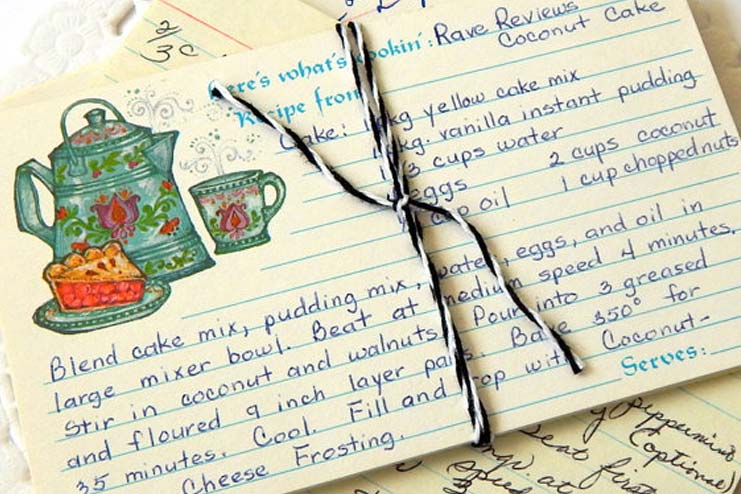 2/3 c
Here's what's cookin': Rave Reviews
Coconut Cake
Recipe from
Cake: pkg yellow cake mix
pkg. vanilla instant pudding
/3 cups water
eggs 2 cups coconut
cup oil 1 cup chopped nuts
Blend cake mix, pudding mix, water, eggs, and oil in
large mixer bowl. Beat at medium speed 4 minutes.
Stir in coconut and walnuts. Pour into 3 greased
and floured 9 inch layer pans. Bake 350° for
35 minutes. Cool. Fill and top with Coconut-
Cheese Frosting.
Serves:
peppermint
(optional)
eat first